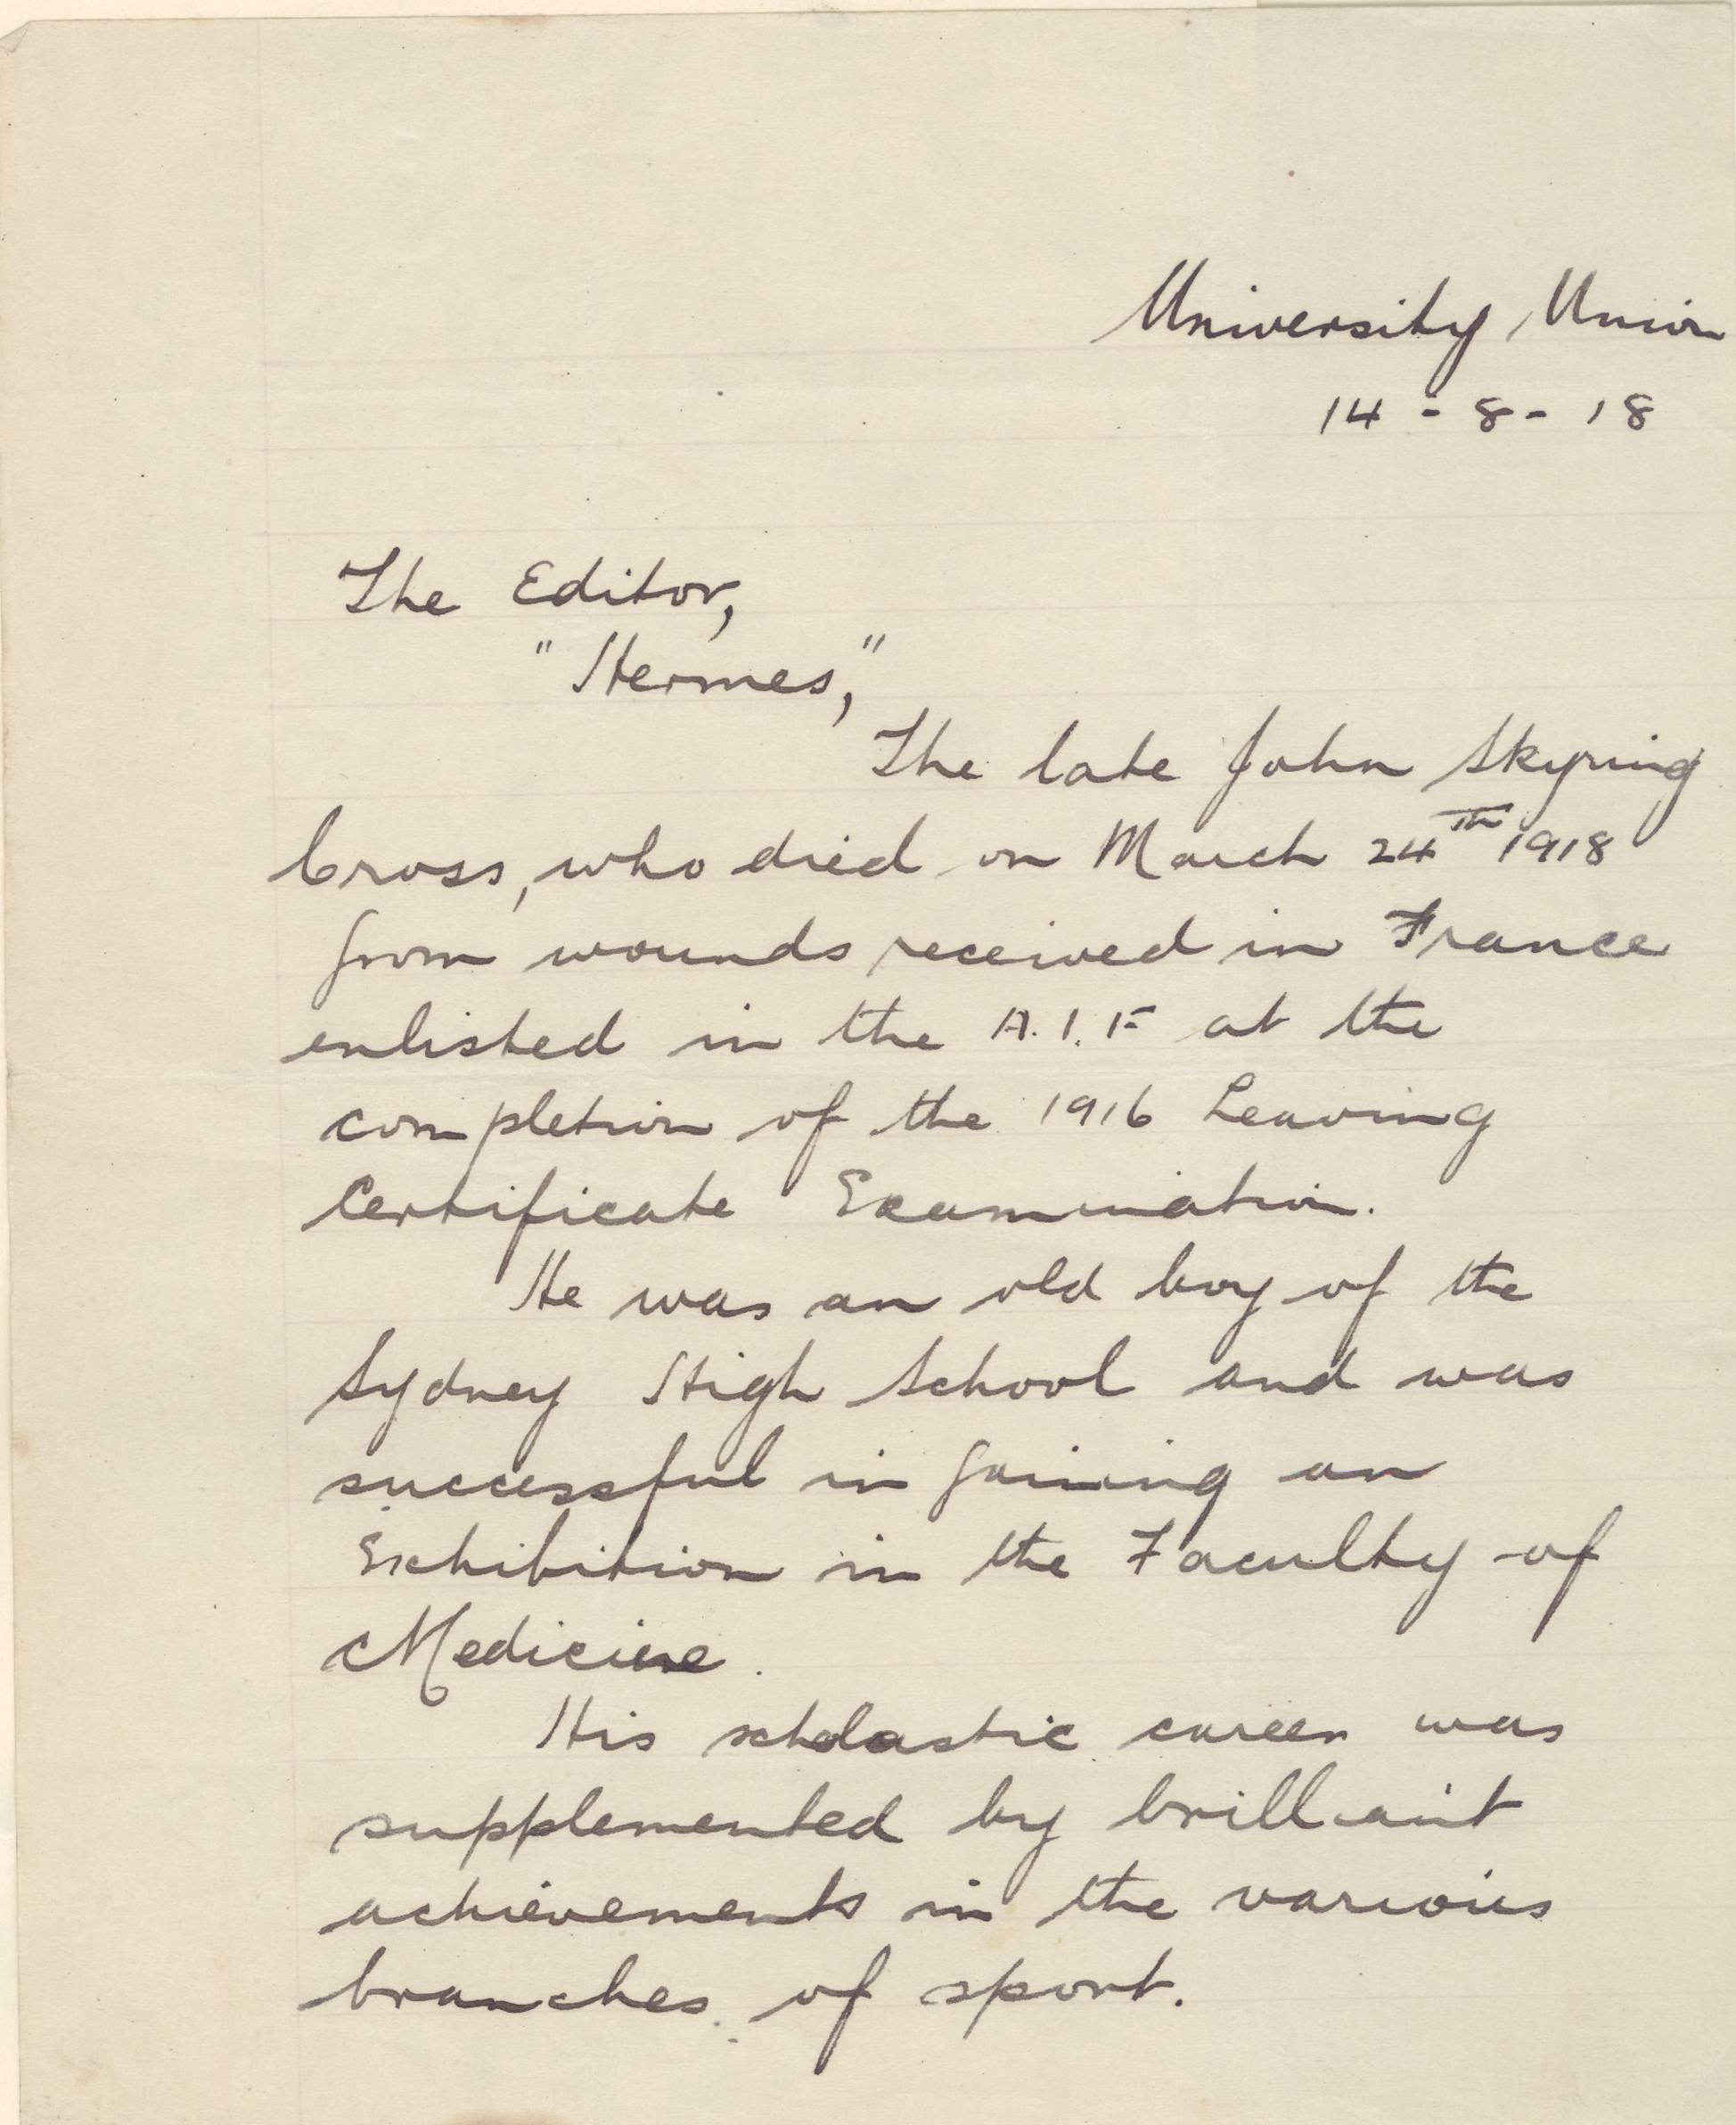 University Union
14-8-18
The Editor,
"Hermes,"
The late John Skyring
Cross, who died on March 24th 1918
from wounds received in France
enlisted in the A.I.F at the
completion of the 1916 Leaving
Certificate Examination.
He was an old boy of the
Sydney High School and was
successful in gaining an
Exhibition in the Faculty of
Medicine.
His scholastic career was
supplemented by brilliant
achievements in the various
branches of sport.